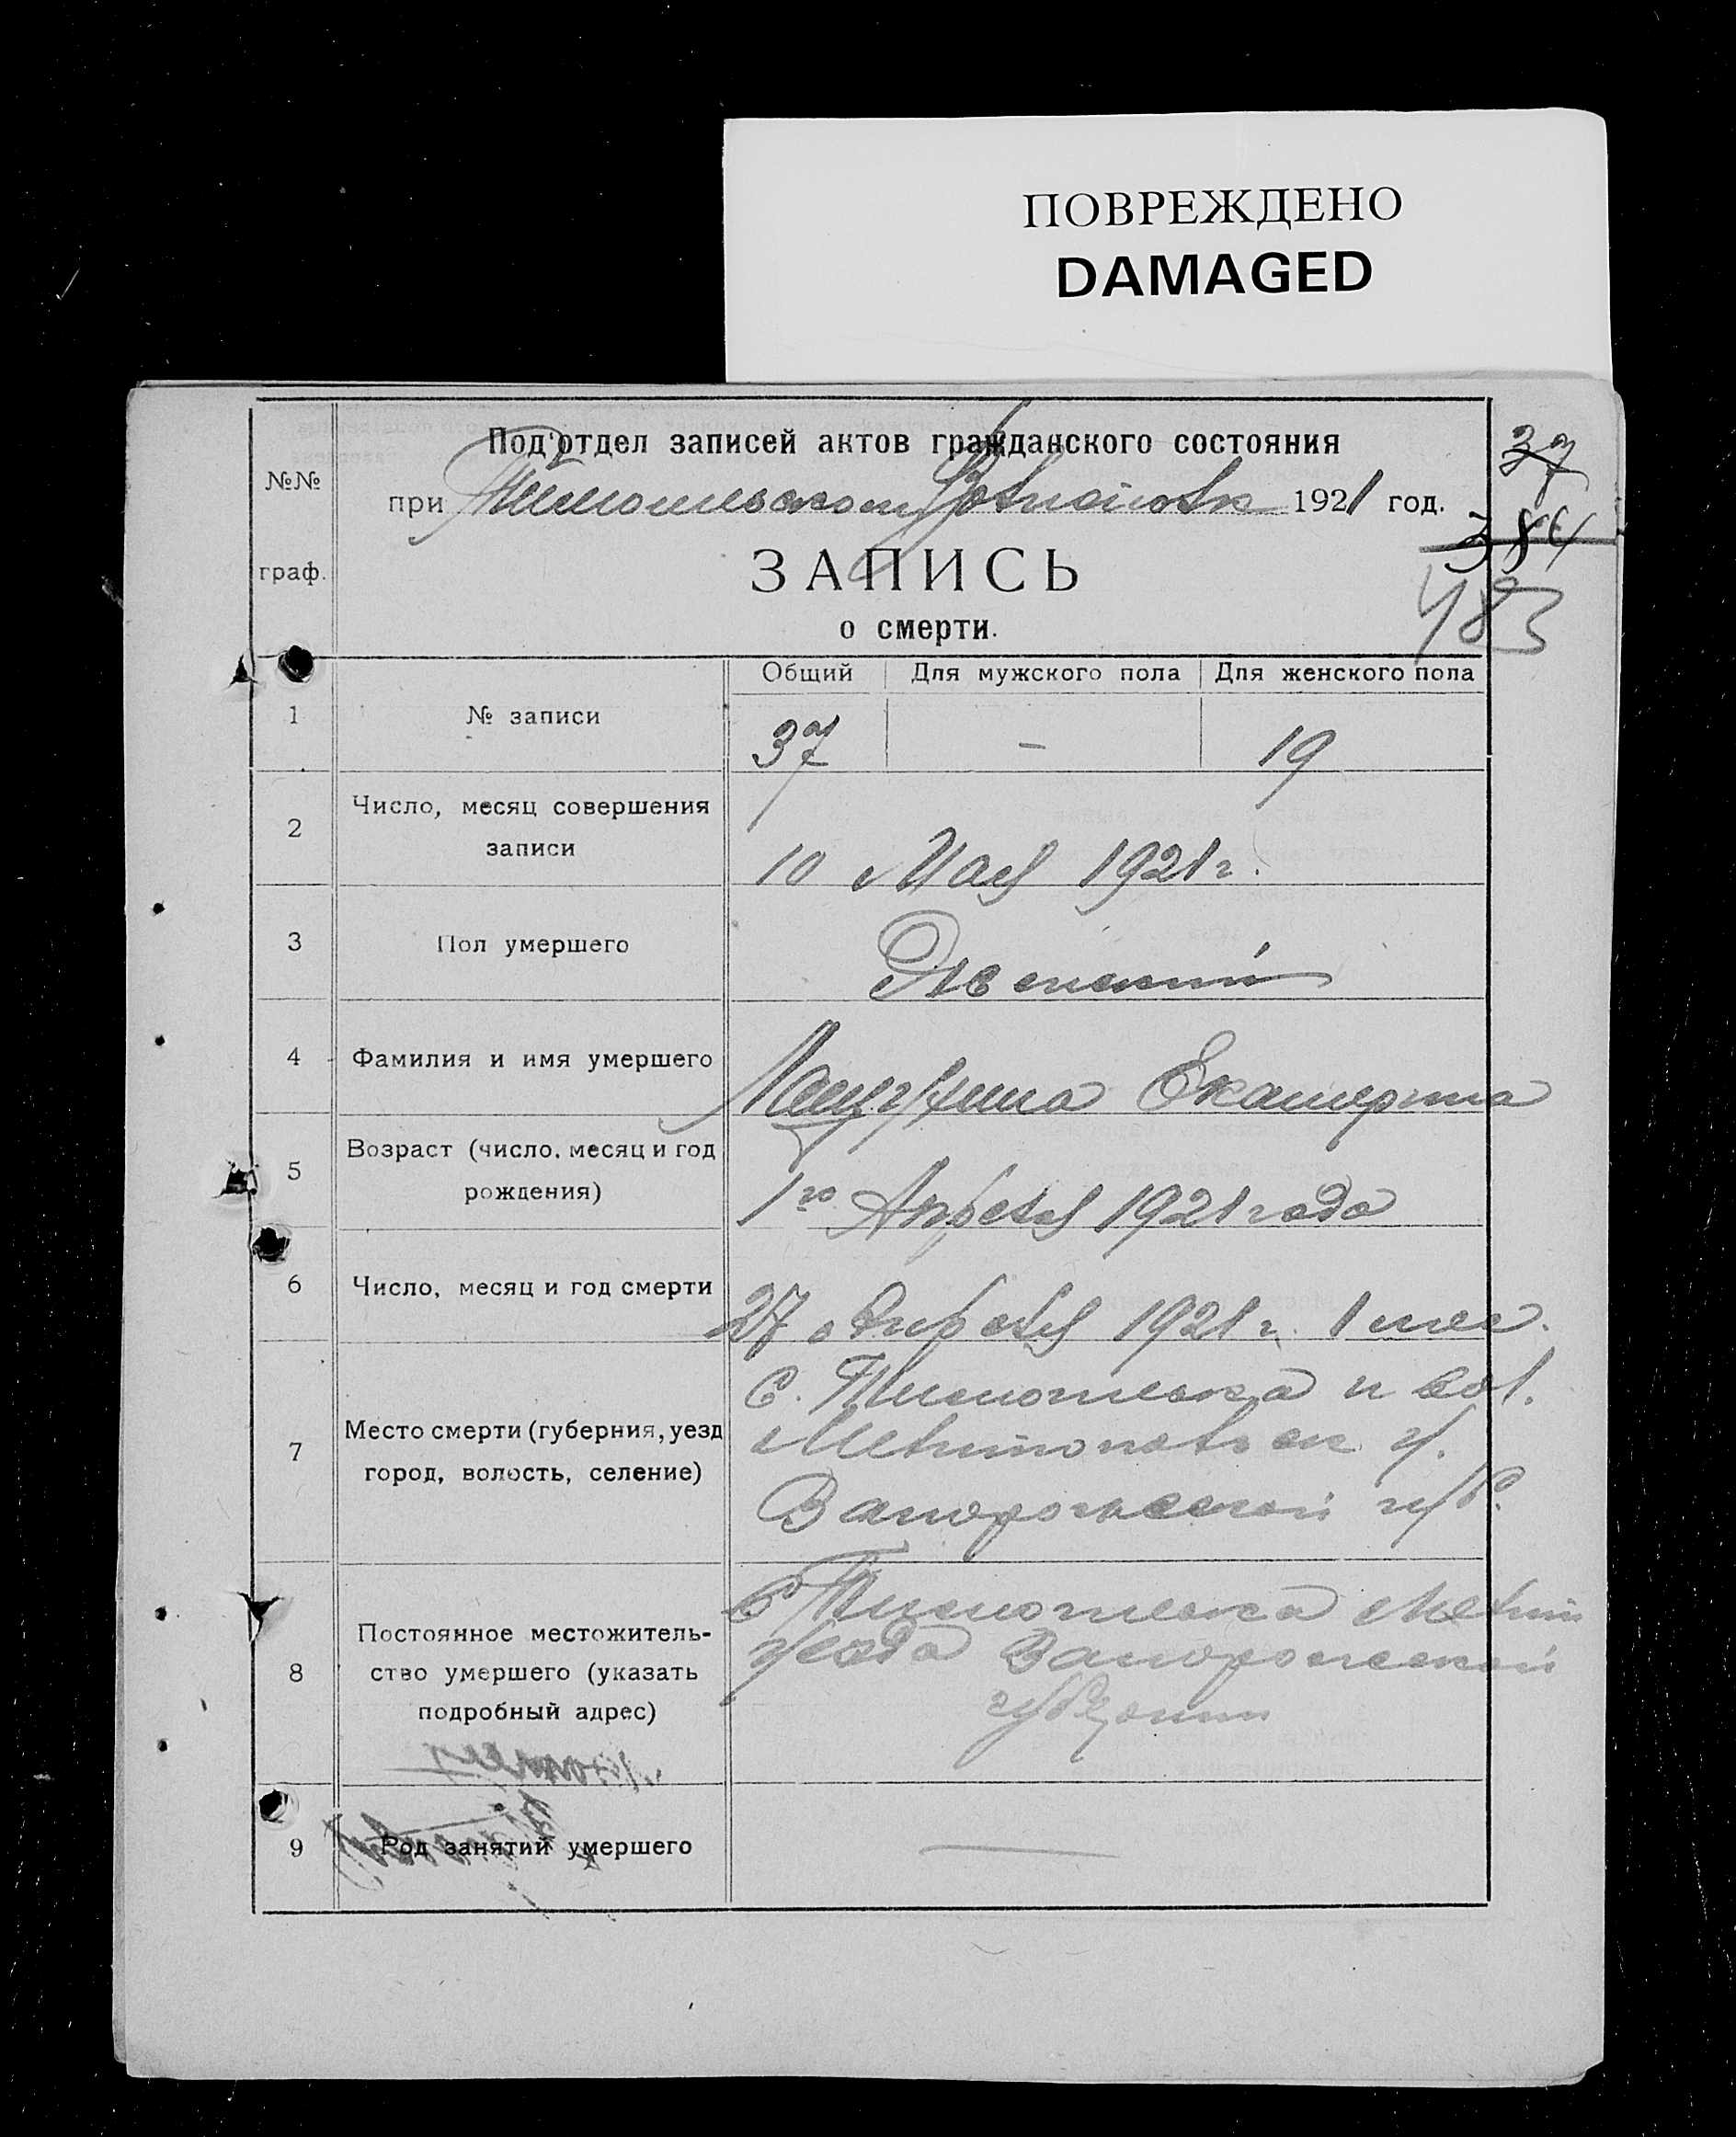 ПОВРЕЖДЕНО
DAMAGED
Под'отдел записей актов гражданского состояния
№№
при 1921 год.
37
384
483
граф.
ЗАПИСЬ
о смерти.
Общий Для мужского пола Для женского пола
1 № записи 37 — 19
2 Число, месяц совершения записи
10 Мая 1921 г.
3 Пол умершего Женский
4 Фамилия и имя умершего Екатерина
5 Возраст (число, месяц и год рождения)
1го Апреля 1921 года
6 Число, месяц и год смерти 27 Апреля 1921 г. 1 мес.
7 Место смерти (губерния, уезд город, волость, селение)
С. Тимошевка и вол.
Мелитопольск у.
Запорожской губ.
8 Постоянное местожитель-
ство умершего (указать
подробный адрес)
С Тимошевка Мелит
уезда Запорожской
губернии
9 Род занятий умершего —